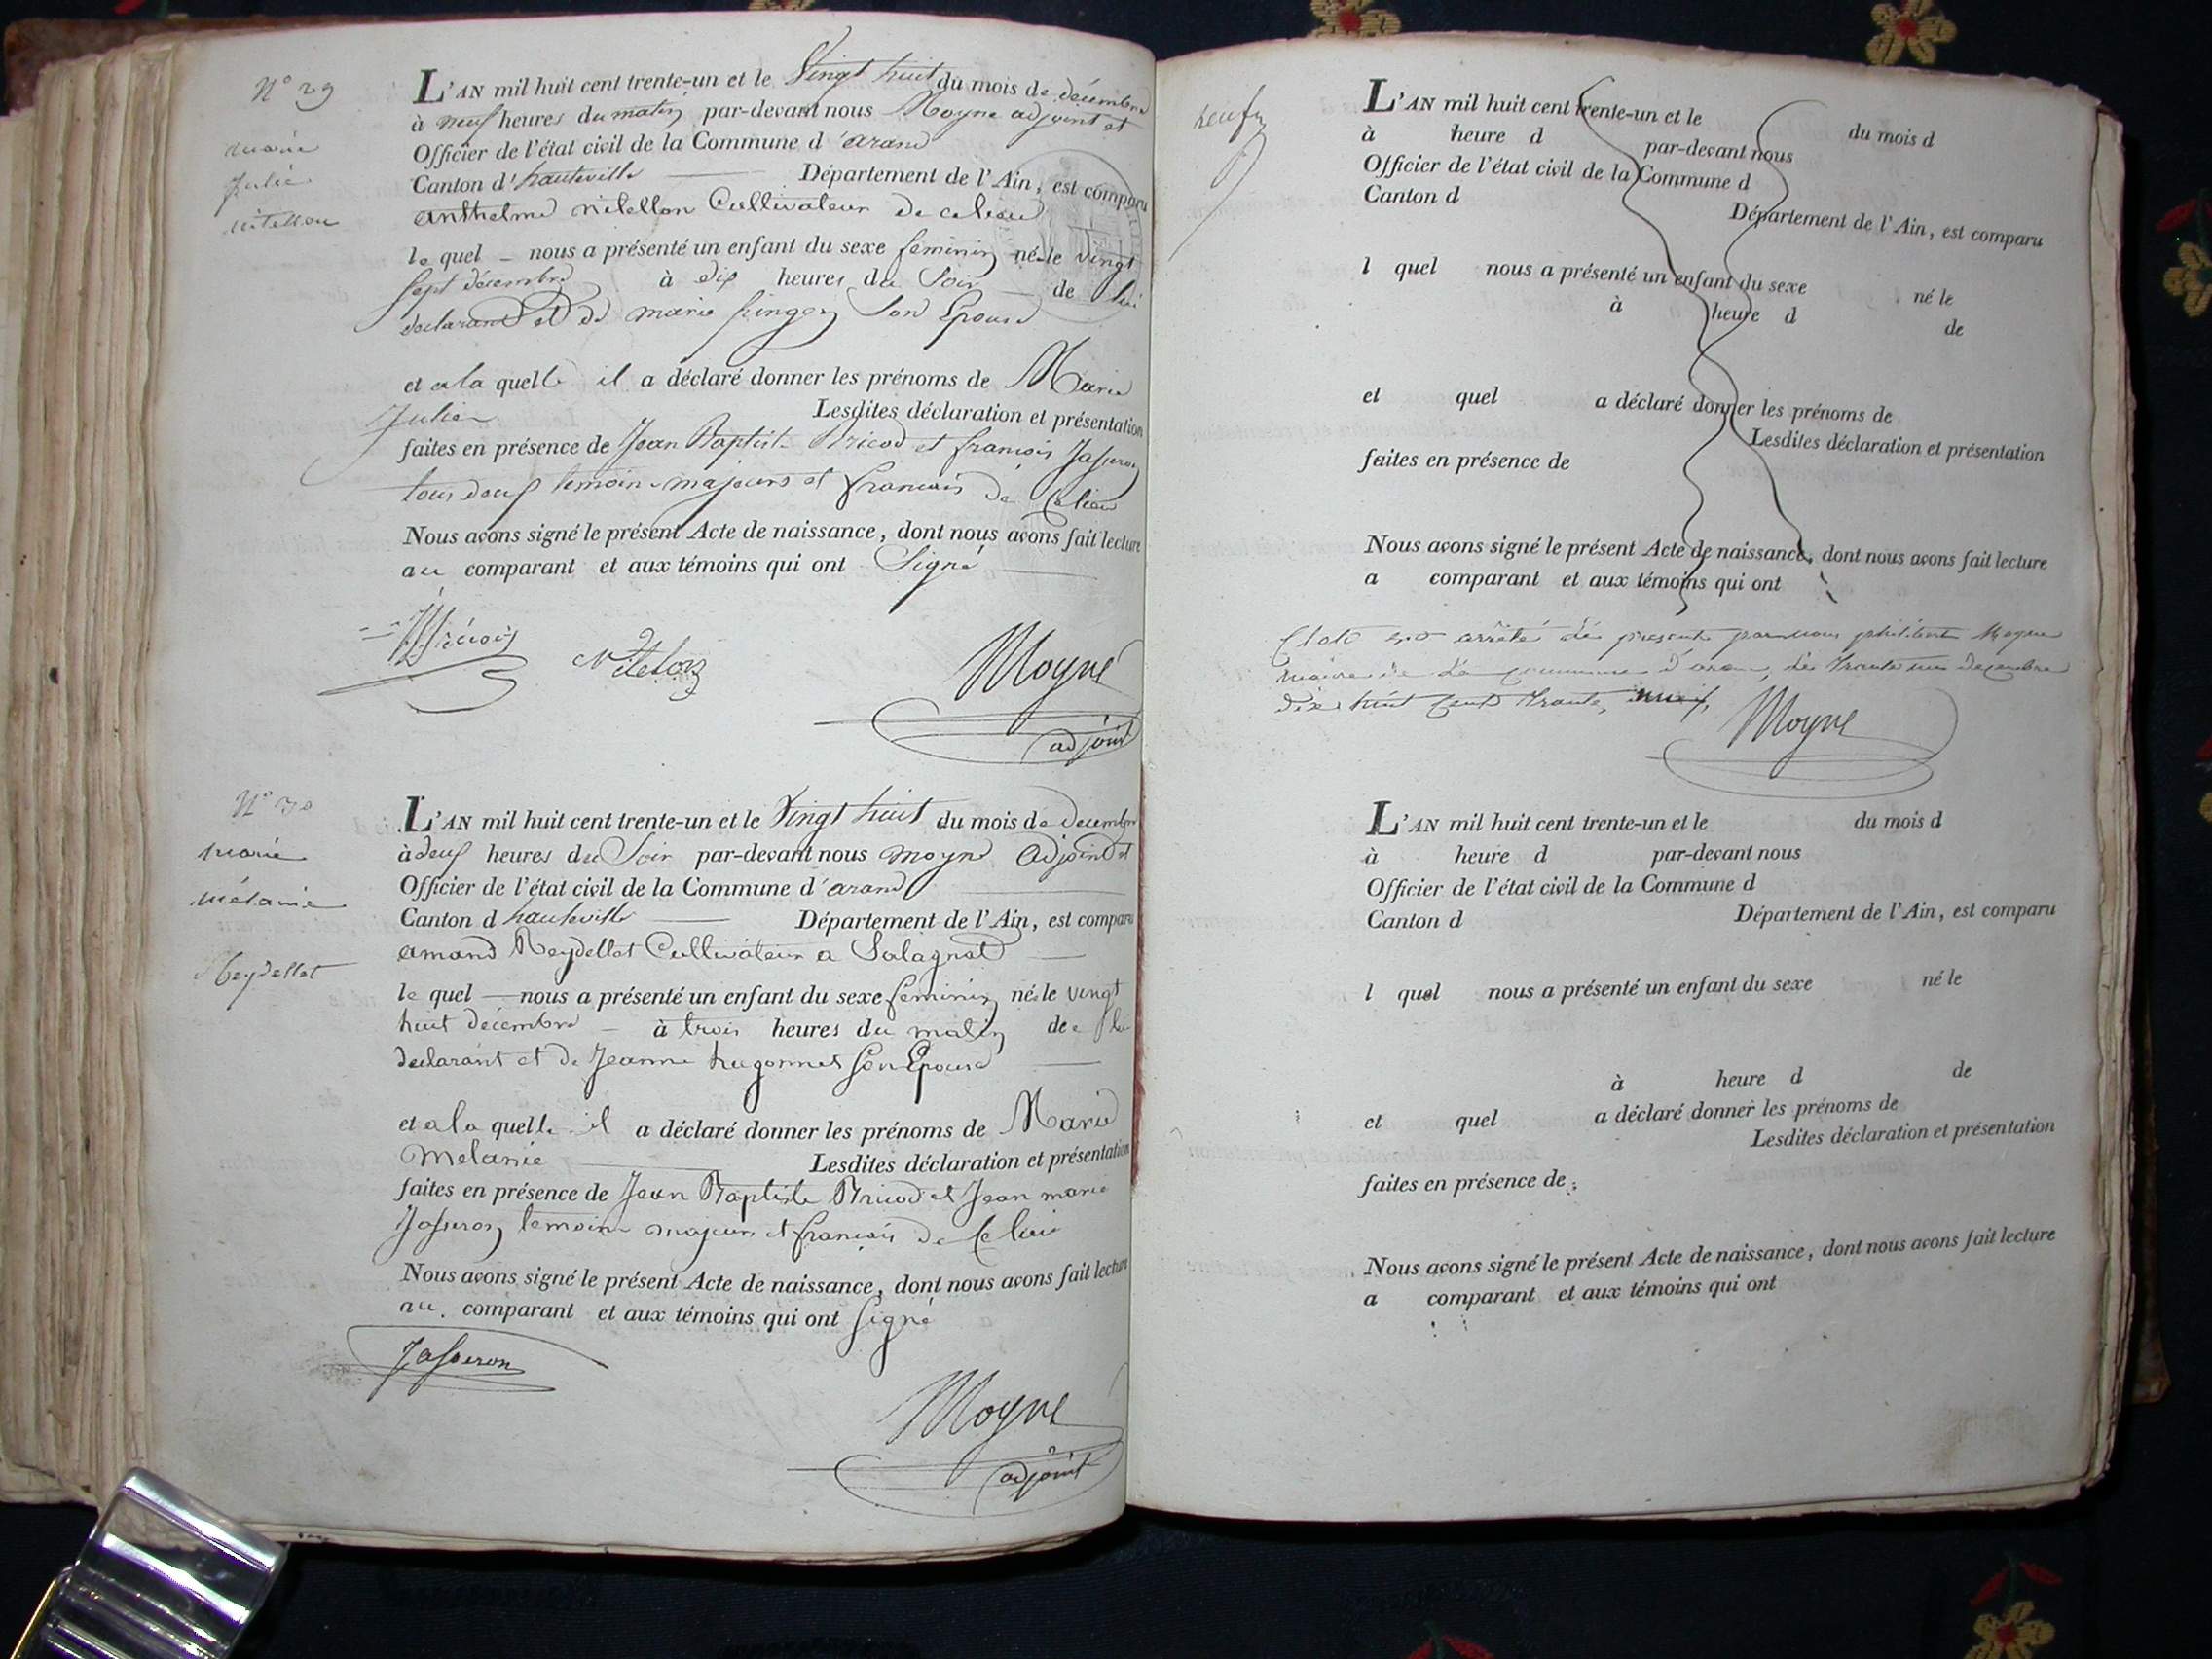 N° 29
marie
Julie
nitellon
L'AN mil huit cent trente-un et le Vingt huit du mois de décembre
à neuf heures du matin par-devant nous Moyne adjoint et
Officier de l'état civil de la Commune d'arand
Canton d'hauteville Département de l'Ain, est comparu
anthelme nitellon Cultivateur de
le quel nous a présenté un enfant du sexe feminin né le vingt
sept décembre à dix heures du Soir de lui
declarant et de marie Son Epouse
et a la quelle il a déclaré donner les prénoms de Marie
Julie Lesdites déclaration et présentation
faites en présence de Jean Baptiste Bricod et francois Jasseron
tous deux temoin majeurs et francais de
Nous avons signé le présent Acte de naissance, dont nous avons fait lecture
au comparant et aux témoins qui ont Signé
Moyne
adjoint
N° 30
marie
mélanie
Reydellet
L'AN mil huit cent trente-un et le Vingt huit du mois de decembre
à deux heures du Soir par-devant nous moyne adjoint et
Officier de l'état civil de la Commune d'arand
Canton d hauteville Département de l'Ain, est comparu
amand Reydellet Cultivateur a Salagnat
le quel nous a présenté un enfant du sexe feminin né le vingt
huit décembre à trois heures du matin de lui
declarant et de Jeanne hugonnet son Epouse
et a la quelle il a déclaré donner les prénoms de Marie
Melanie Lesdites déclaration et présentation
faites en présence de Jean Baptiste Bricod et Jean marie
Jasseron temoins majeurs et francais de
Nous avons signé le présent Acte de naissance, dont nous avons fait lecture
au comparant et aux témoins qui ont signé
Jasseron
Moyne
adjoint
L'AN mil huit cent trente-un et le du mois d
à heure d par-devant nous
Officier de l'état civil de la Commune d
Canton d Département de l'Ain, est comparu
l quel nous a présenté un enfant du sexe né le
à heure d de
et quel a déclaré donner les prénoms de
Lesdites déclaration et présentation
faites en présence de
Nous avons signé le présent Acte de naissance, dont nous avons fait lecture
a comparant et aux témoins qui ont
arrêté le present par nous Moyne
maire de la commune d'aran, le trante un decembre
dix huit cent trante,
Moyne
L'AN mil huit cent trente-un et le du mois d
à heure d par-devant nous
Officier de l'état civil de la Commune d
Canton d Département de l'Ain, est comparu
l quel nous a présenté un enfant du sexe né le
à heure d de
et quel a déclaré donner les prénoms de
Lesdites déclaration et présentation
faites en présence de
Nous avons signé le présent Acte de naissance, dont nous avons fait lecture
a comparant et aux témoins qui ont